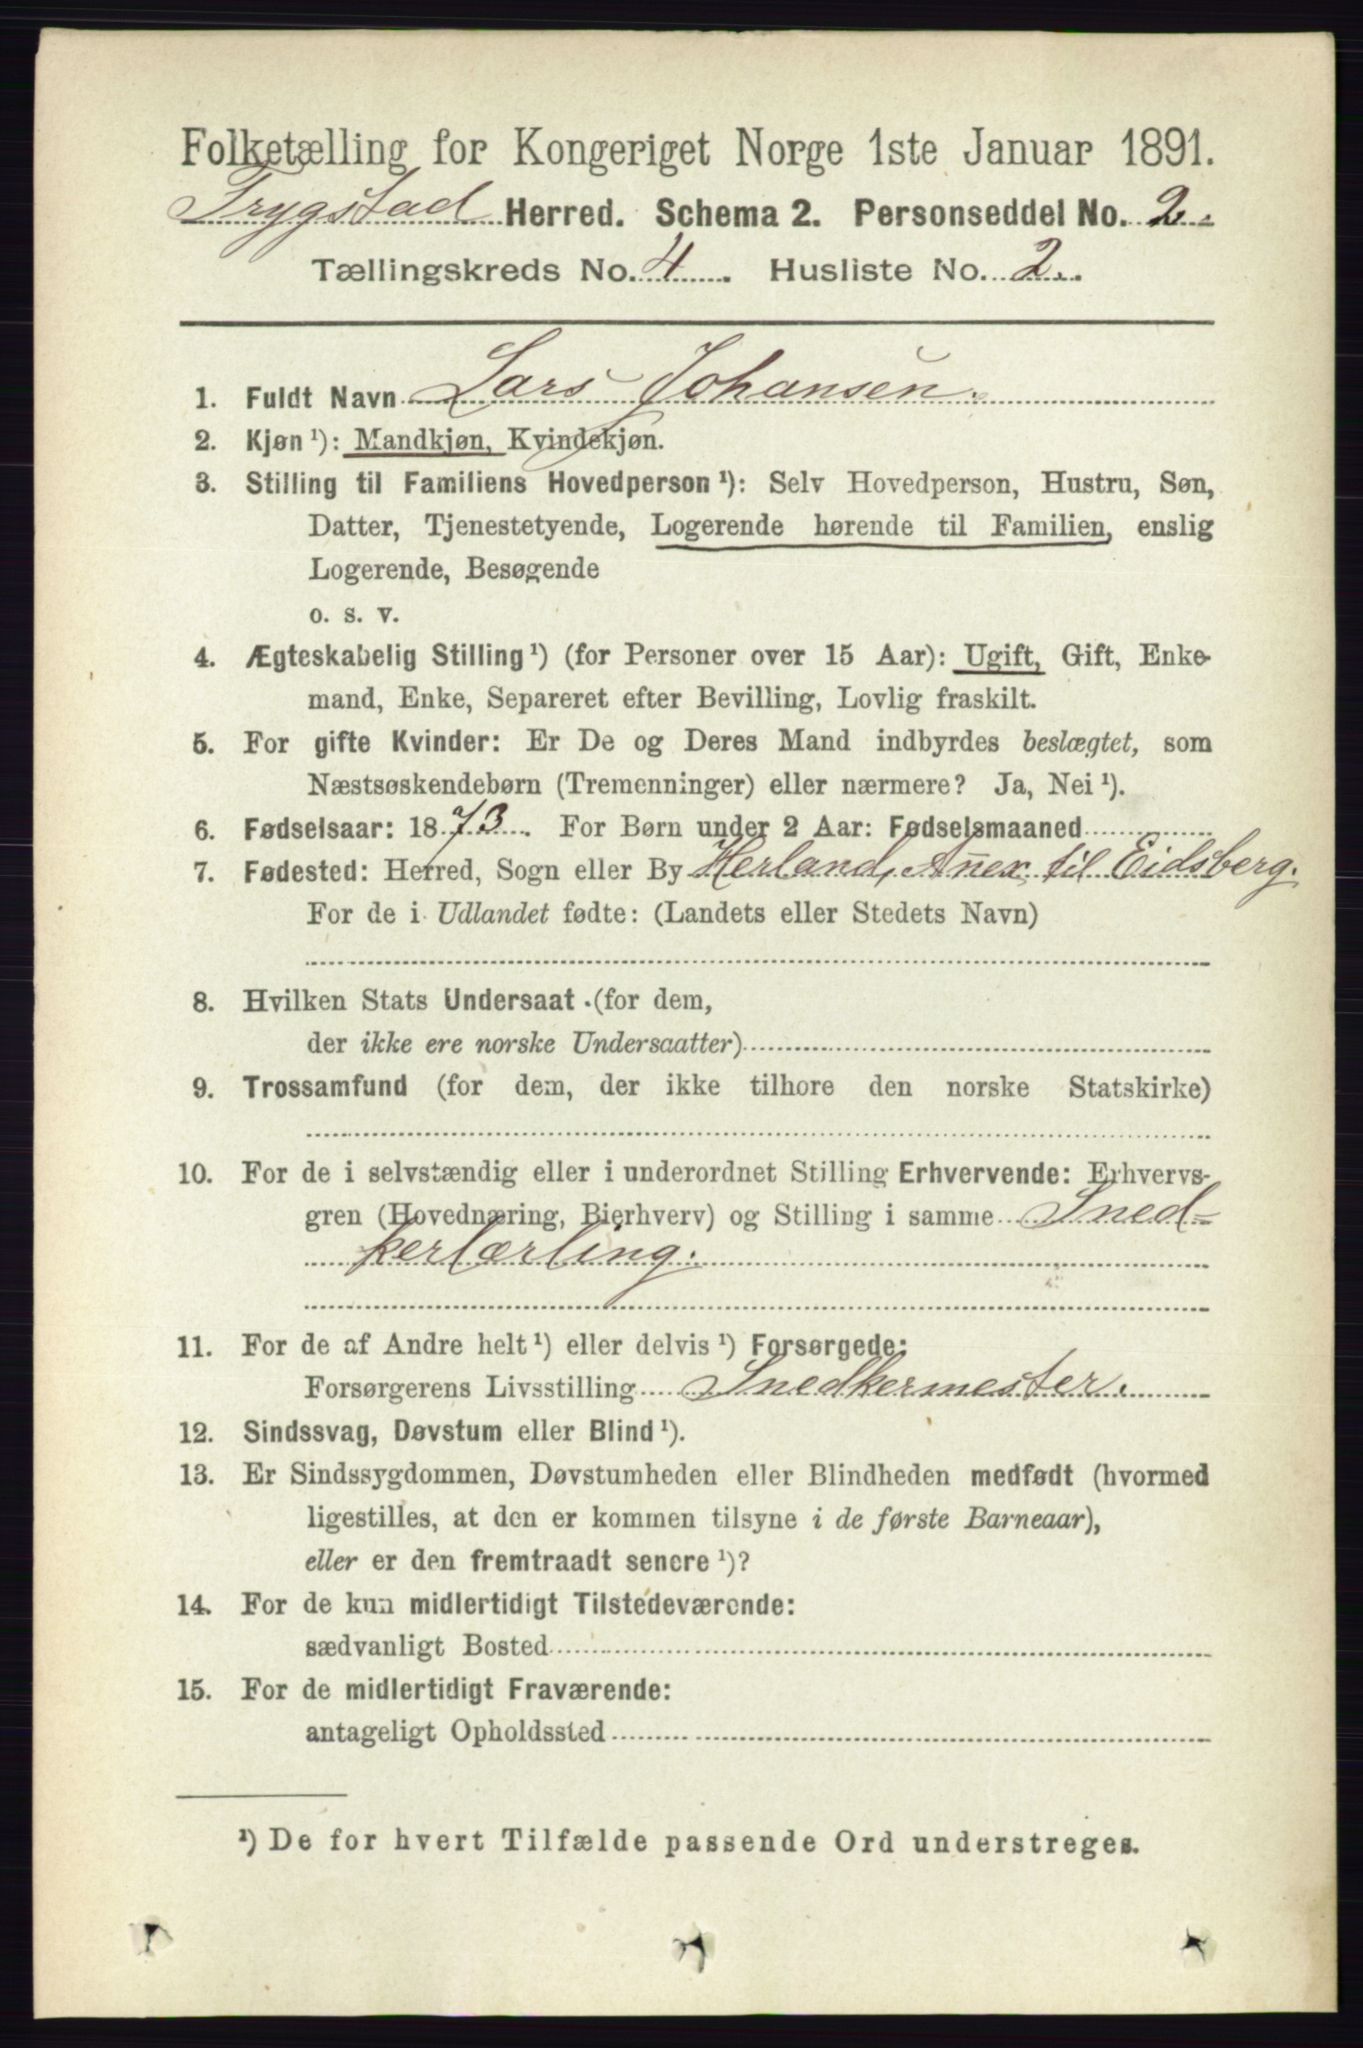 Folketælling for Kongeriget Norge 1ste Januar 1891.
Trygstad Herred. Schema 2. Personseddel No. 2.
Tællingskreds No. 4. Husliste No. 2.
1. Fuldt Navn Lars Johansen.
2. Kjøn ¹): Mandkjøn, Kvindekjøn.
3. Stilling til Familiens Hovedperson ¹): Selv Hovedperson, Hustru, Søn,
Datter, Tjenestetyende, Logerende hørende til Familien, enslig
Logerende, Besøgende
o. s. v.
4. Ægteskabelig Stilling ¹) (for Personer over 15 Aar): Ugift, Gift, Enke-
mand, Enke, Separeret efter Bevilling, Lovlig fraskilt.
5. For gifte Kvinder: Er De og Deres Mand indbyrdes beslægtet, som
Næstsøskendebørn (Tremenninger) eller nærmere? Ja, Nei ¹).
6. Fødselsaar: 1873. For Børn under 2 Aar: Fødselsmaaned
7. Fødested: Herred, Sogn eller By Herland, Anex til Eidsberg.
For de i Udlandet fødte: (Landets eller Stedets Navn)
8. Hvilken Stats Undersaat (for dem,
der ikke ere norske Undersaatter)
9. Trossamfund (for dem, der ikke tilhøre den norske Statskirke)
10. For de i selvstændig eller i underordnet Stilling Erhvervende: Erhvervs-
gren (Hovednæring, Bierhverv) og Stilling i samme Sned-
kerlærling.
11. For de af Andre helt ¹) eller delvis ¹) Forsørgede:
Forsørgerens Livsstilling Snedkermester.
12. Sindssvag, Døvstum eller Blind ¹).
13. Er Sindssygdommen, Døvstumheden eller Blindheden medfødt (hvormed
ligestilles, at den er kommen tilsyne i de første Barneaar),
eller er den fremtraadt senere ¹)?
14. For de kun midlertidigt Tilstedeværende:
sædvanligt Bosted
15. For de midlertidigt Fraværende:
antageligt Opholdssted
¹) De for hvert Tilfælde passende Ord understreges.